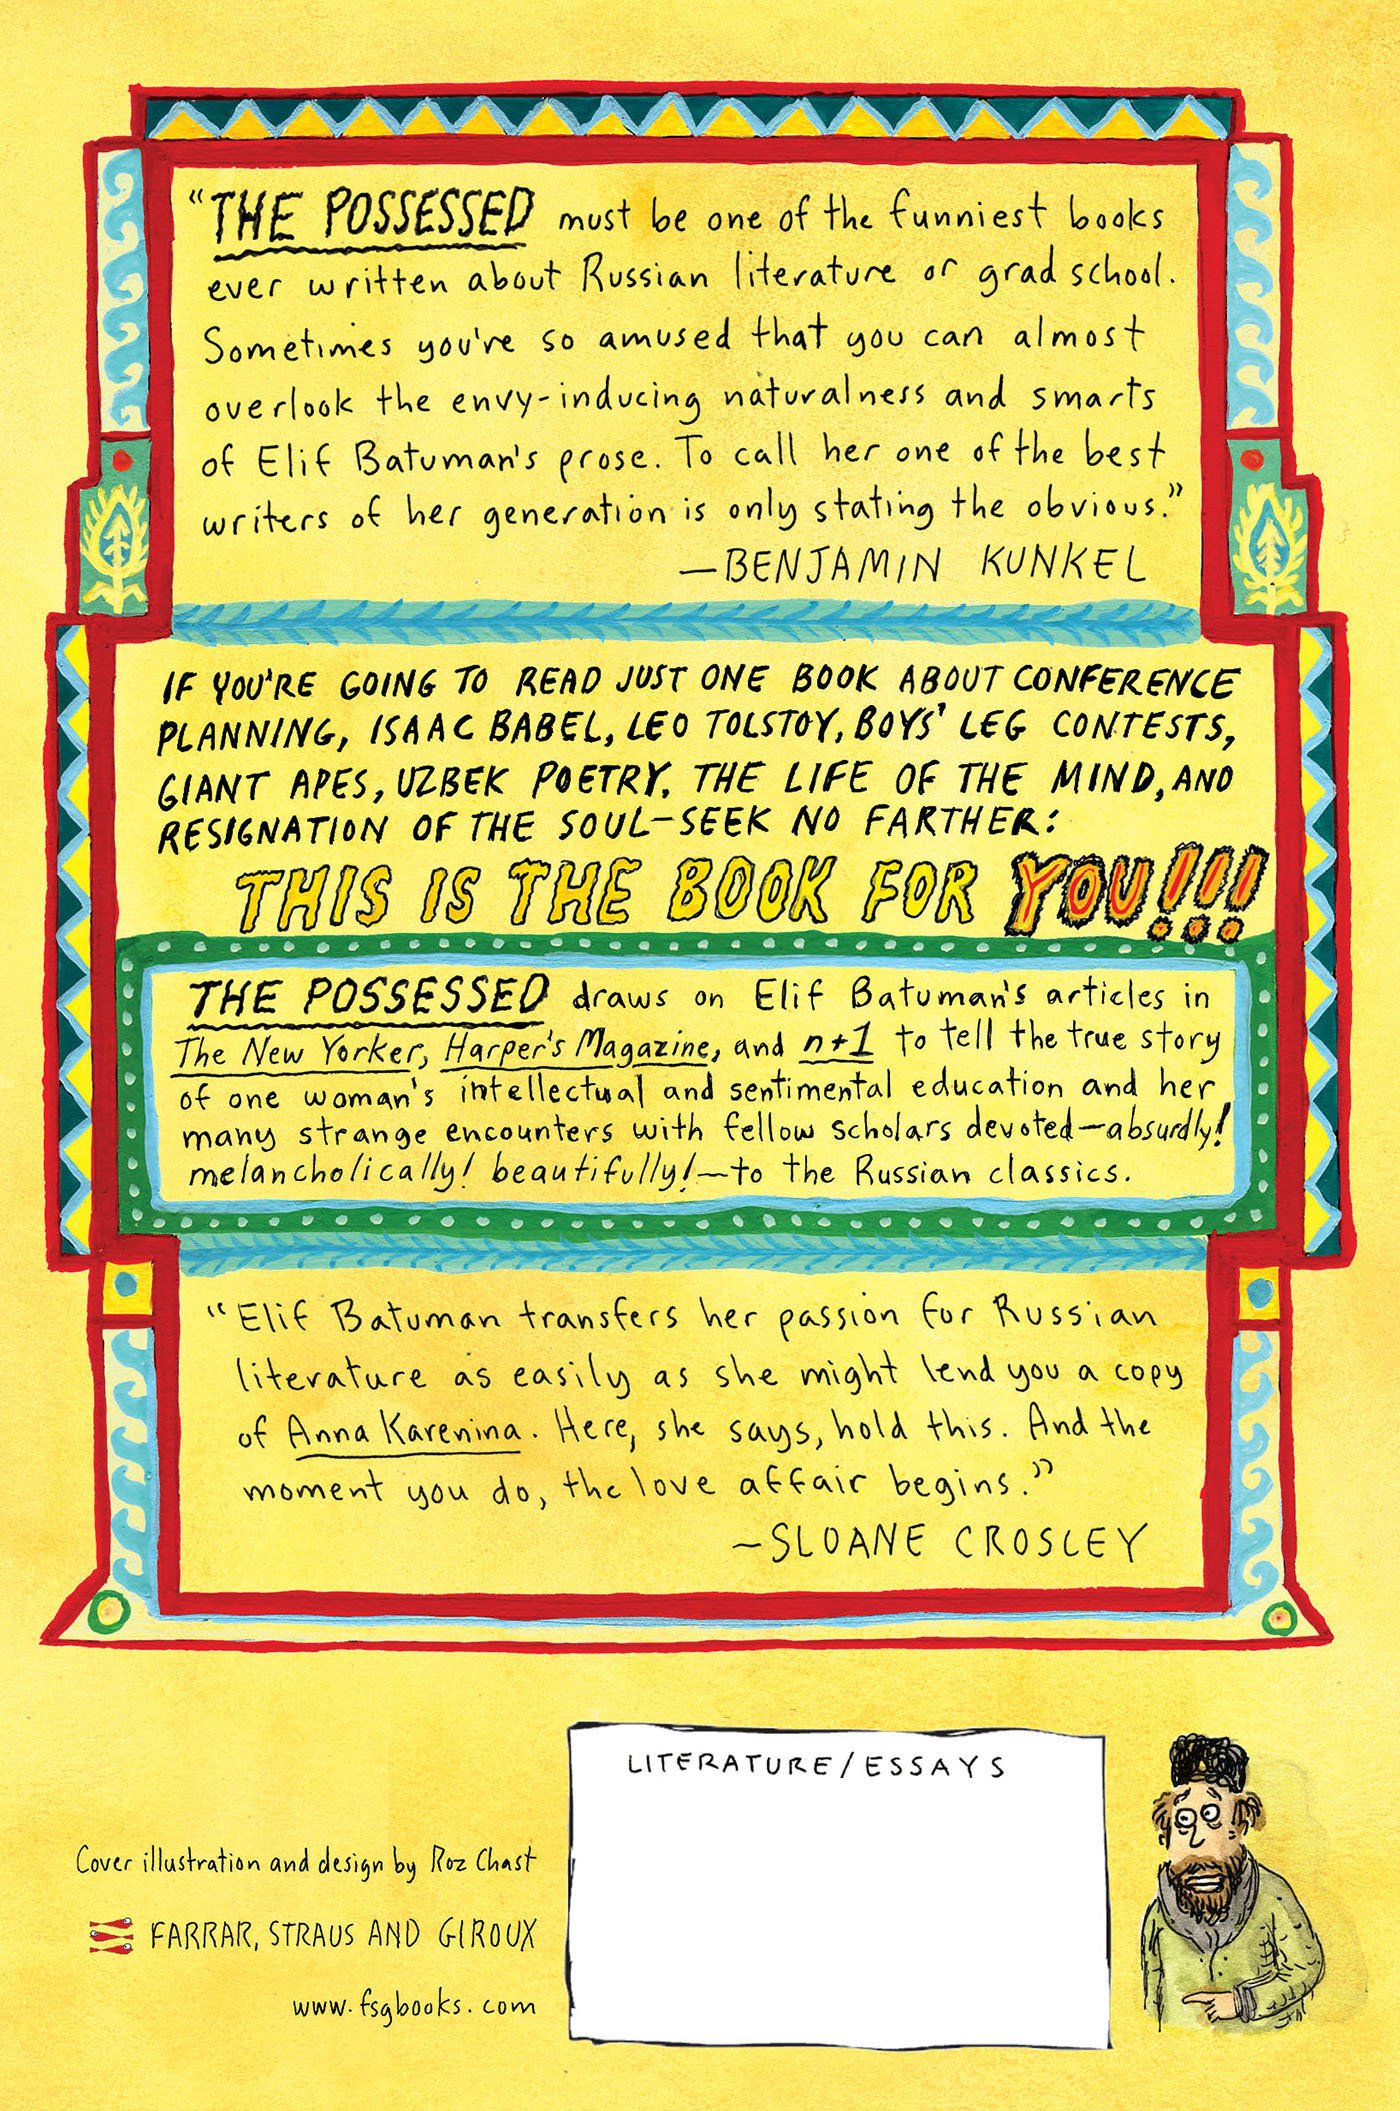 “THE POSSESSED must be one of the funniest books
ever written about Russian literature or grad school.
Sometimes you're so amused that you can almost
overlook the envy-inducing naturalness and smarts
of Elif Batuman's prose. To call her one of the best
writers of her generation is only stating the obvious.”
—BENJAMIN KUNKEL
IF YOU'RE GOING TO READ JUST ONE BOOK ABOUT CONFERENCE
PLANNING, ISAAC BABEL, LEO TOLSTOY, BOYS' LEG CONTESTS,
GIANT APES, UZBEK POETRY, THE LIFE OF THE MIND, AND
RESIGNATION OF THE SOUL—SEEK NO FARTHER:
THIS IS THE BOOK FOR YOU!!!
THE POSSESSED draws on Elif Batuman's articles in
The New Yorker, Harper's Magazine, and n+1 to tell the true story
of one woman's intellectual and sentimental education and her
many strange encounters with fellow scholars devoted—absurdly!
melancholically! beautifully!—to the Russian classics.
“Elif Batuman transfers her passion for Russian
literature as easily as she might lend you a copy
of Anna Karenina. Here, she says, hold this. And the
moment you do, the love affair begins.”
—SLOANE CROSLEY
LITERATURE/ESSAYS
Cover illustration and design by Roz Chast
FARRAR, STRAUS AND GIROUX
www.fsgbooks.com